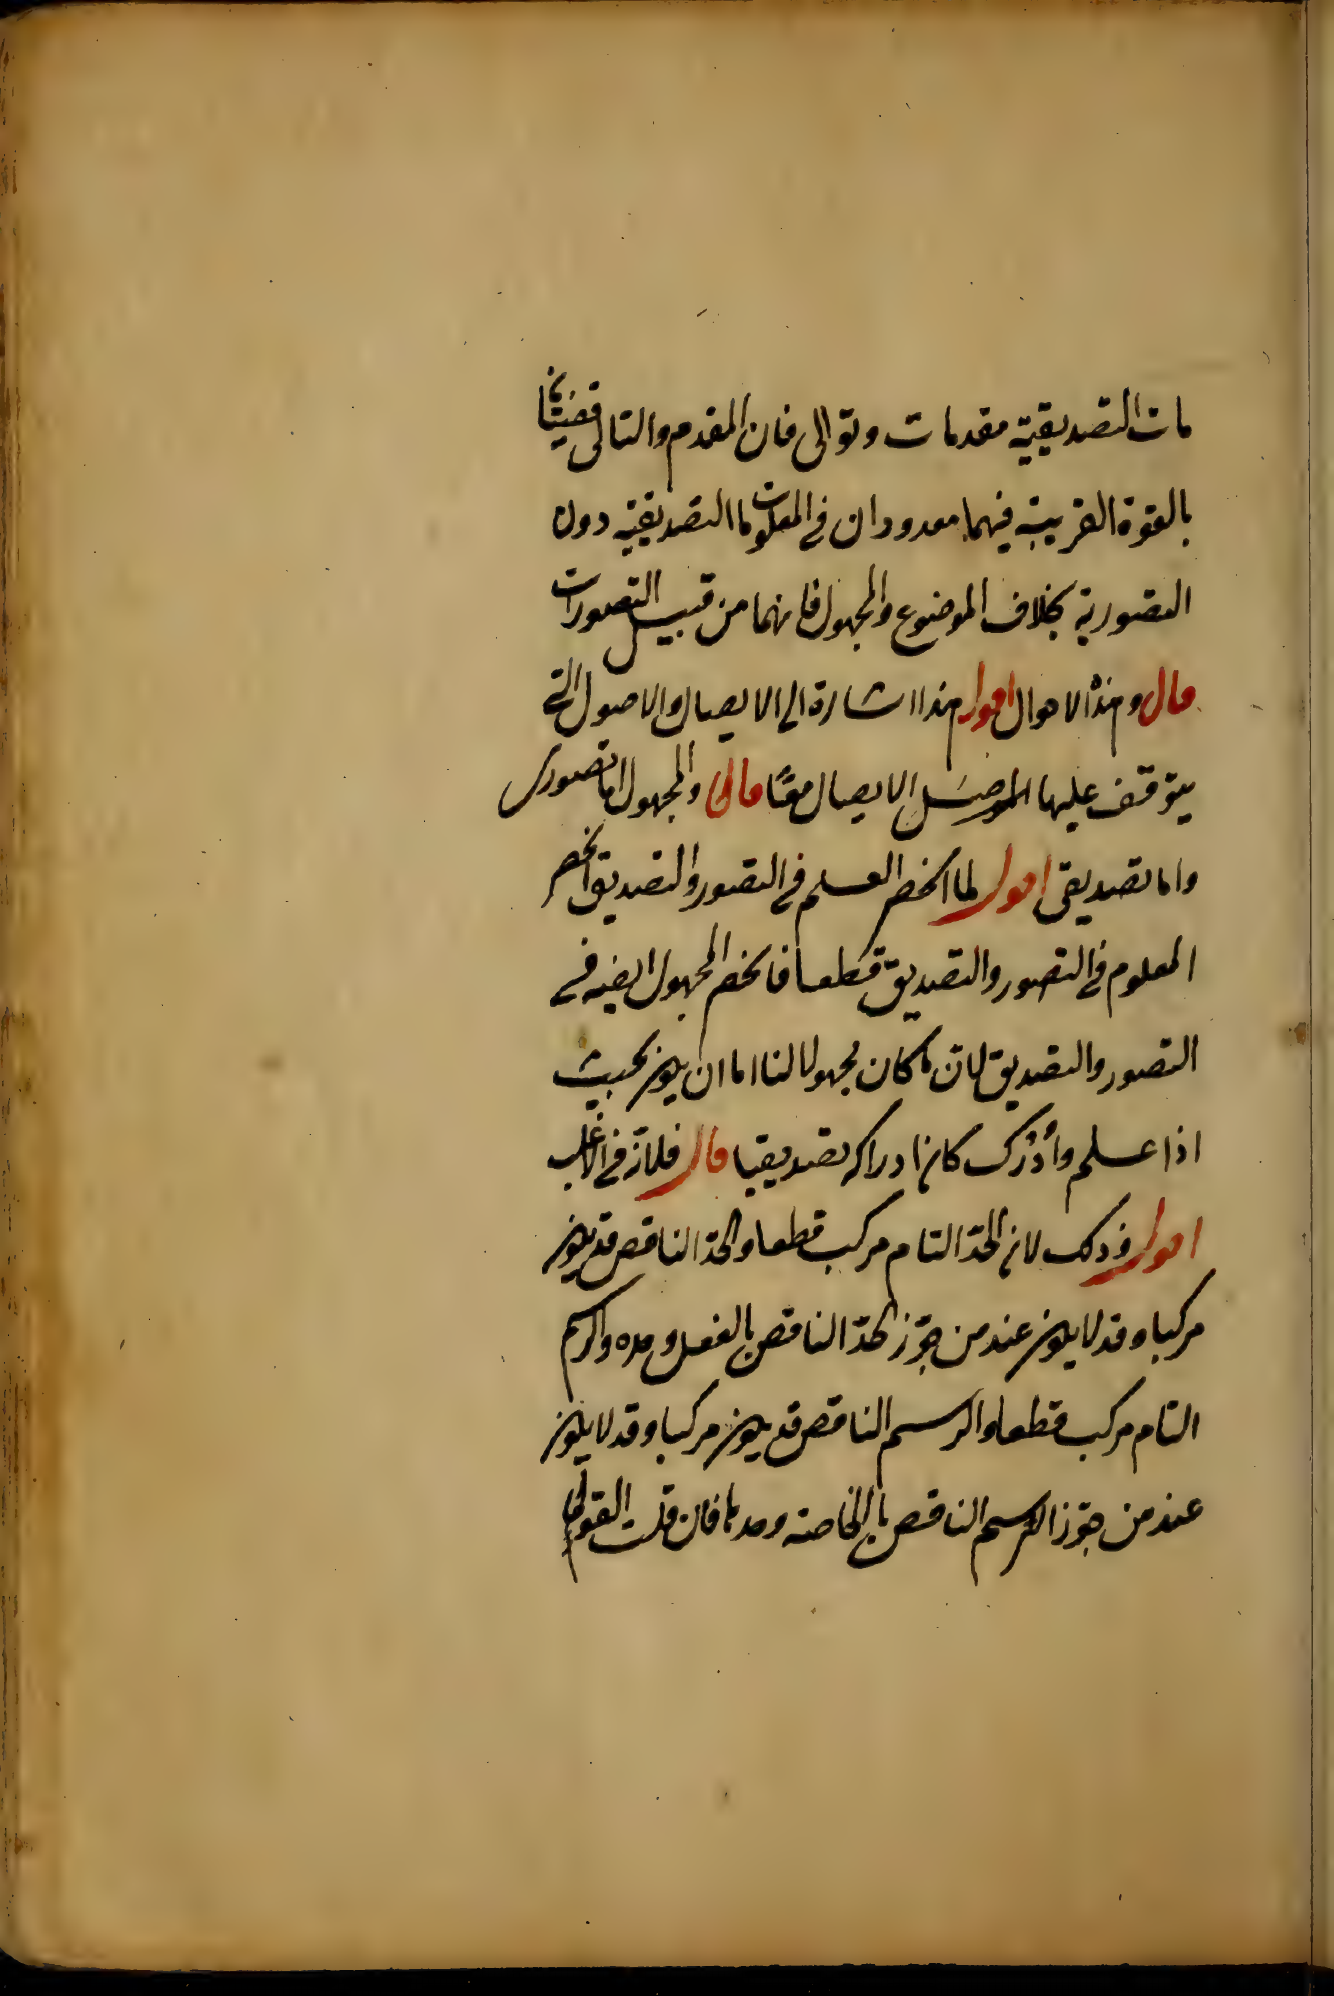 مات التصديقية مقدمات وتوالى فان المقدم والتالى قضيتان
بالقوة القريبة فيهما معدودان فى المعلومات التصديقية دون
التصورية بخلاف الموضوع والمجهول فانهما من قبيل التصورات
قال وهذه الاحوال اقول هذا اشارة الى الايصال والاصول التى
يتوقف عليها الموصل الايصال معًا قال والمجهول اما تصورى
واما تصديقى اقول لما انحصر العلم فى التصور والتصديق انحصر
المعلوم فى التصور والتصديق قطعا فانحصر المجهول ايضا فى
التصور والتصديق لان ما كان مجهولا لنا اما ان يكون بحيث
اذا علم وأدْرك كان ادراكه تصديقيا قال فلانّه فى الاغلب
اقول وذلك لان الحدّ التام مركب قطعا والحدّ الناقص قد يكون
مركبا وقد لا يكون عند من جوّز الحدّ الناقص بالفصل وحده والرسم
التام مركب قطعا والرسم الناقص قد يكون مركبا وقد لا يكون
عند من جوّز الرسم الناقص بالخاصة وحدها فان قلت القول